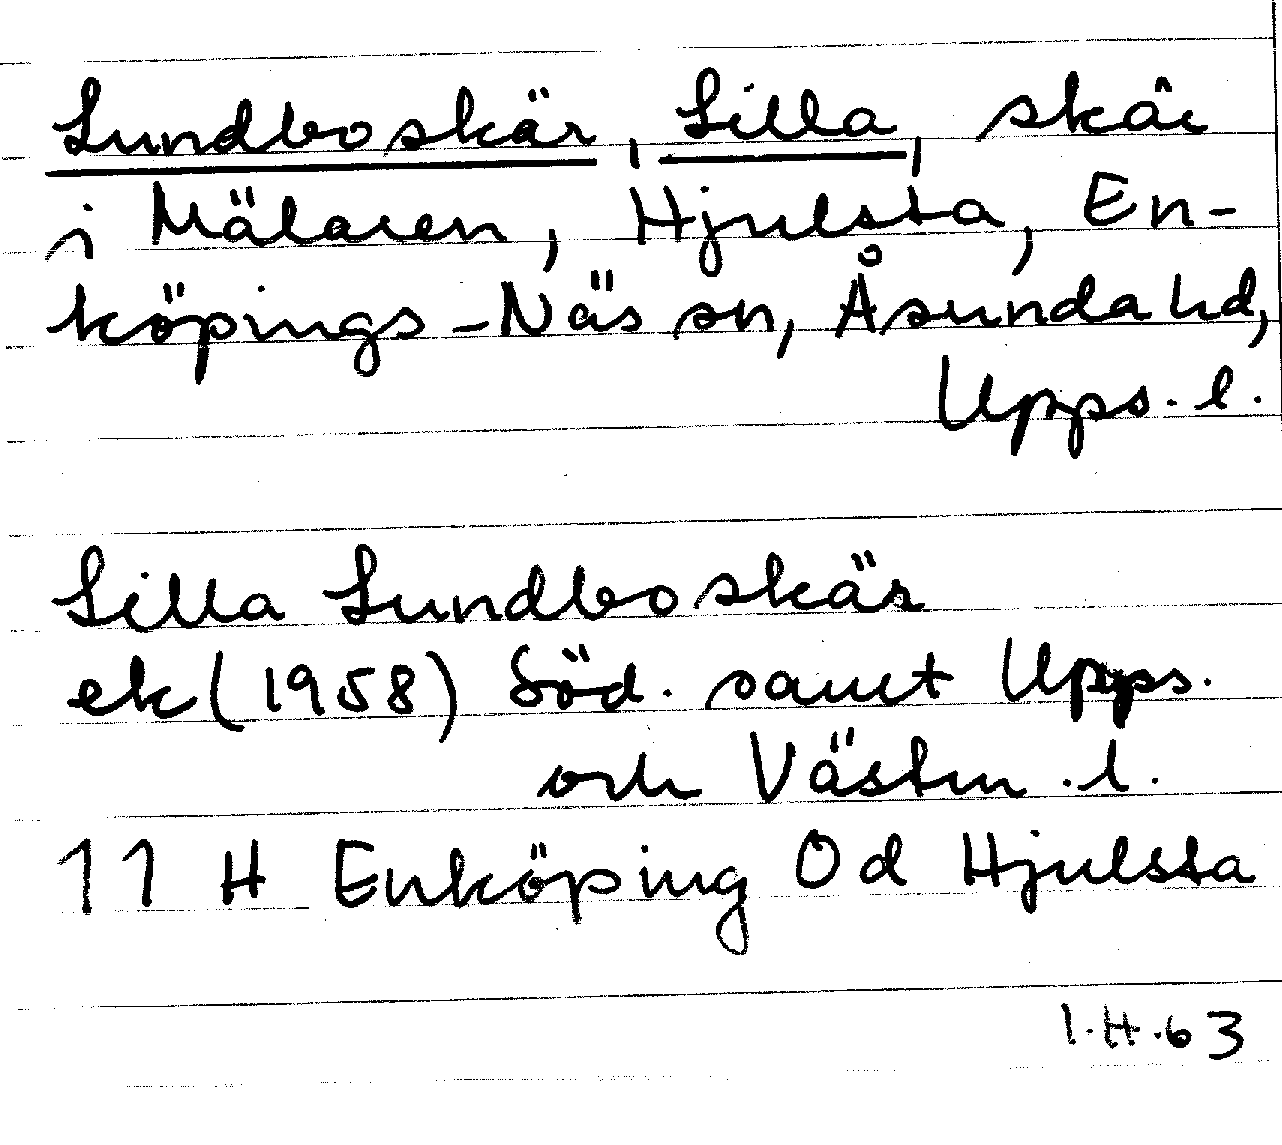 Lundboskär, Lilla, skär
i Mälaren, Hjulsta, En-
köpings-Näs sn, Åsunda hd,
Upps. l.
Lilla Lundboskär
ek (1958) Söd. samt Upps.
och Västm. l.
11 H Enköping 0d Hjulsta
I.H.63